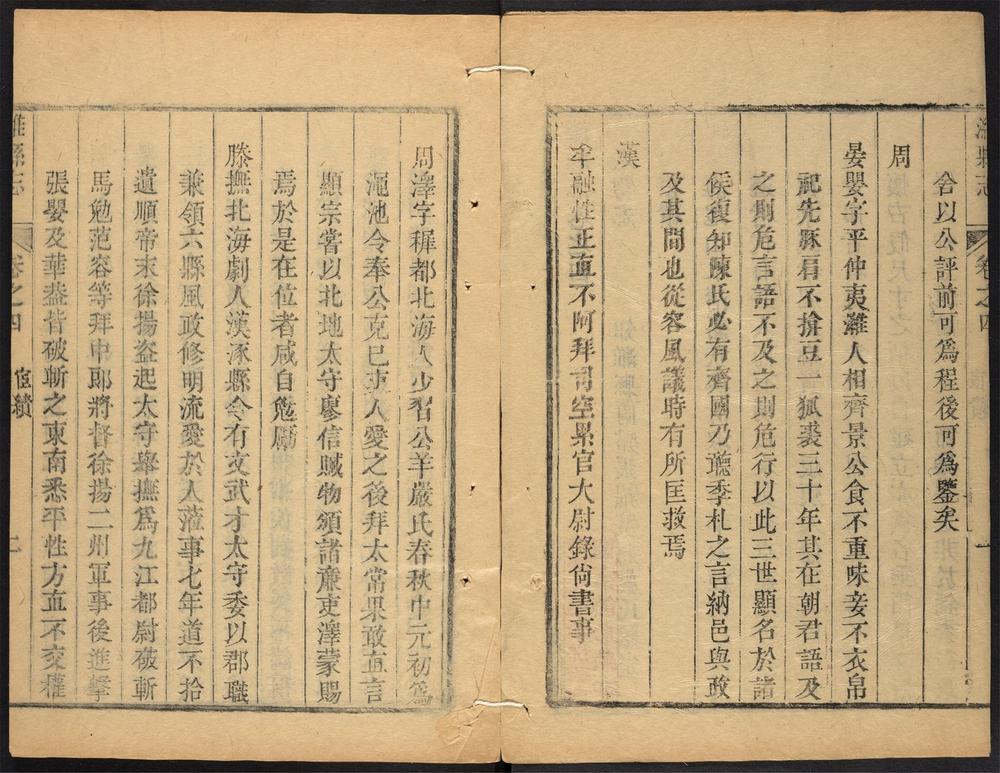 濰縣志 卷之四
舍以公評前可爲程後可爲鑒矣
周
晏嬰字平仲夷濰人相齊景公食不重味妾不衣帛
祀先豚肩不揜豆一狐裘三十年其在朝君語及
之則危言語不及之則危行以此三世顯名於諸
侯復知陳氏必有齊國乃聽季札之言納邑與政
及其間也從容風議時有所匡救焉
漢
牟融性正直不阿拜司空累官大尉錄尙書事
周澤字穉都北海人少習公羊嚴氏春秋中元初爲
澠池令奉公克巳吏人愛之後拜太常果敢直言
顯宗嘗以北地太守廖信贓物頒諸亷吏澤蒙賜
焉於是在位者咸自勉厲
滕撫北海劇人漢涿縣令有文武才太守委以郡職
兼領六縣風政修明流愛於人蒞事七年道不拾
遺順帝末徐揚盜起太守舉撫爲九江都尉破斬
馬勉范容等拜中郎將督徐揚二州軍事後進擊
張嬰及華葢皆破斬之東南悉平性方直不交權
濰縣志 卷之四 宦績 二